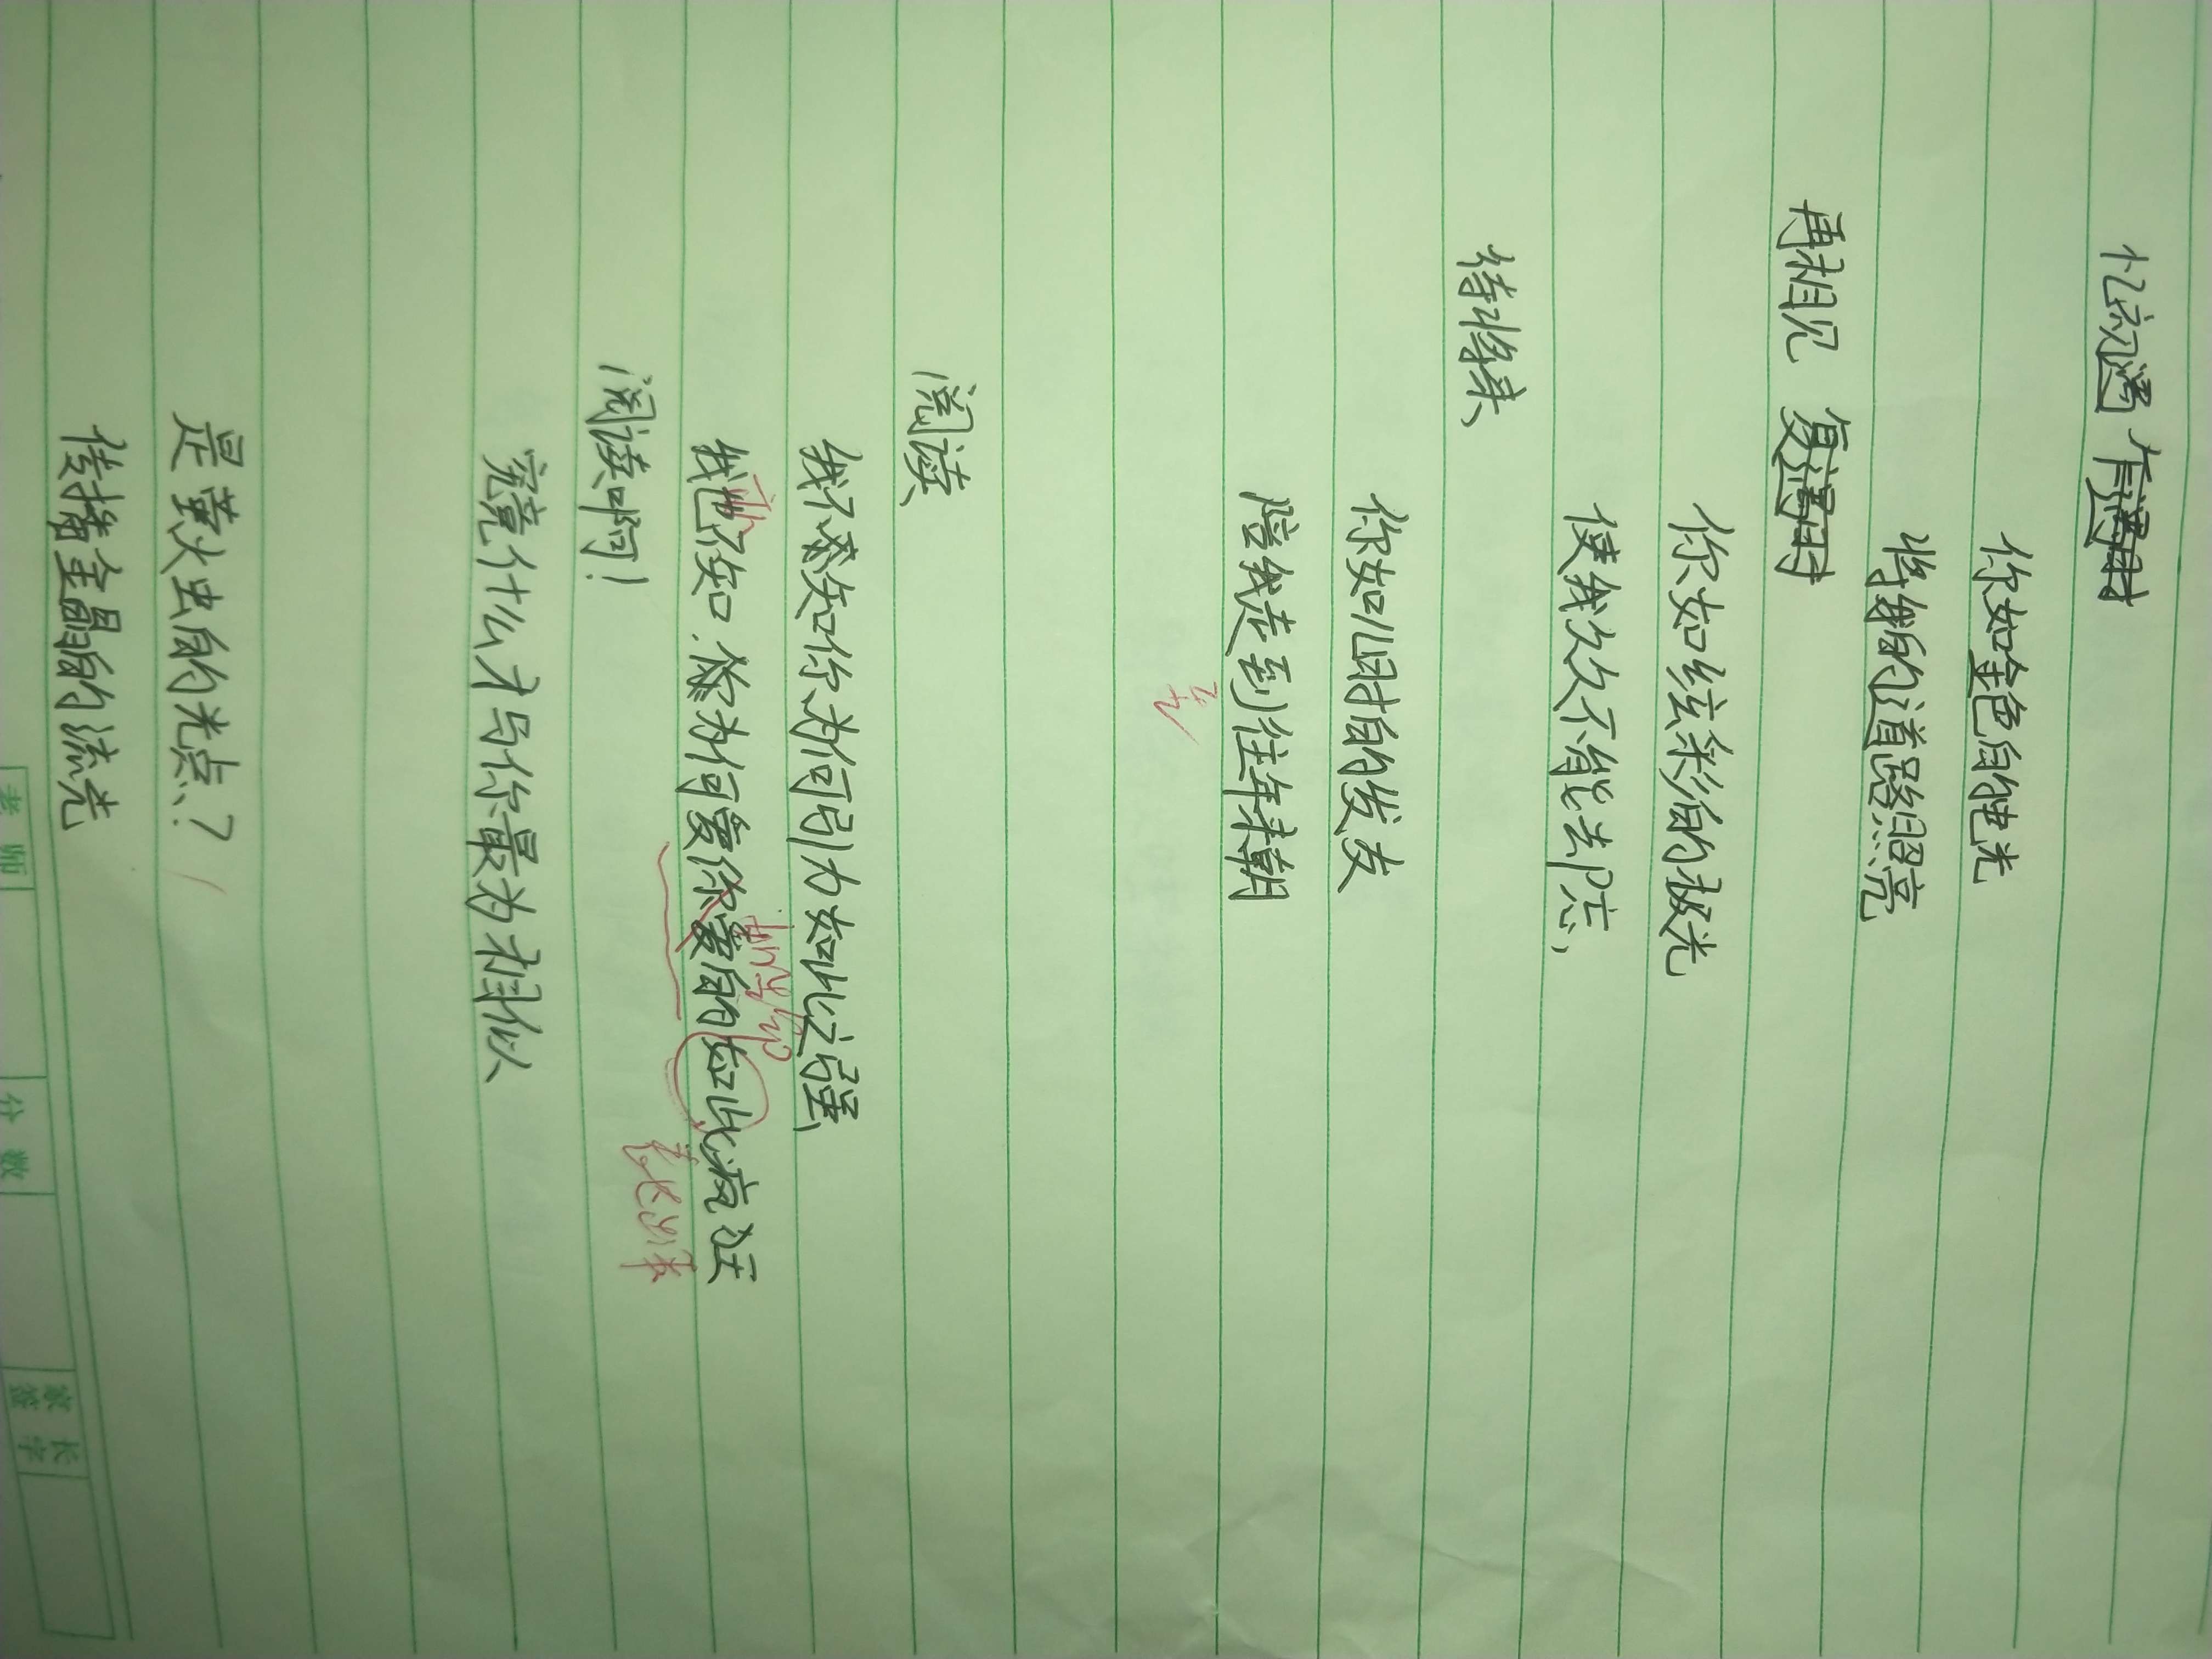 忆初遇 乍遇时
你如金色的电光
将我的道路照亮
再相见 复遇时
你如炫彩的极光
使我久久不能去忘,
待将来、
你如儿时的发友
陪我走到往年来朝
阅读
我不知你为何引力如此之强
我也不知.你为何要你 的如此疯狂
阅读啊!
究竟什么才与你最为相似
是萤火虫的光点?
传播金晶的流光
老师
分数
家长签字